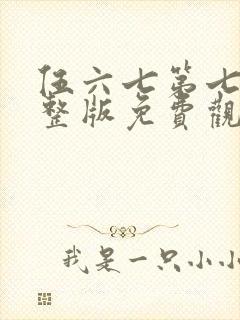 伍六七第七
整版免費觀
我是一只小小